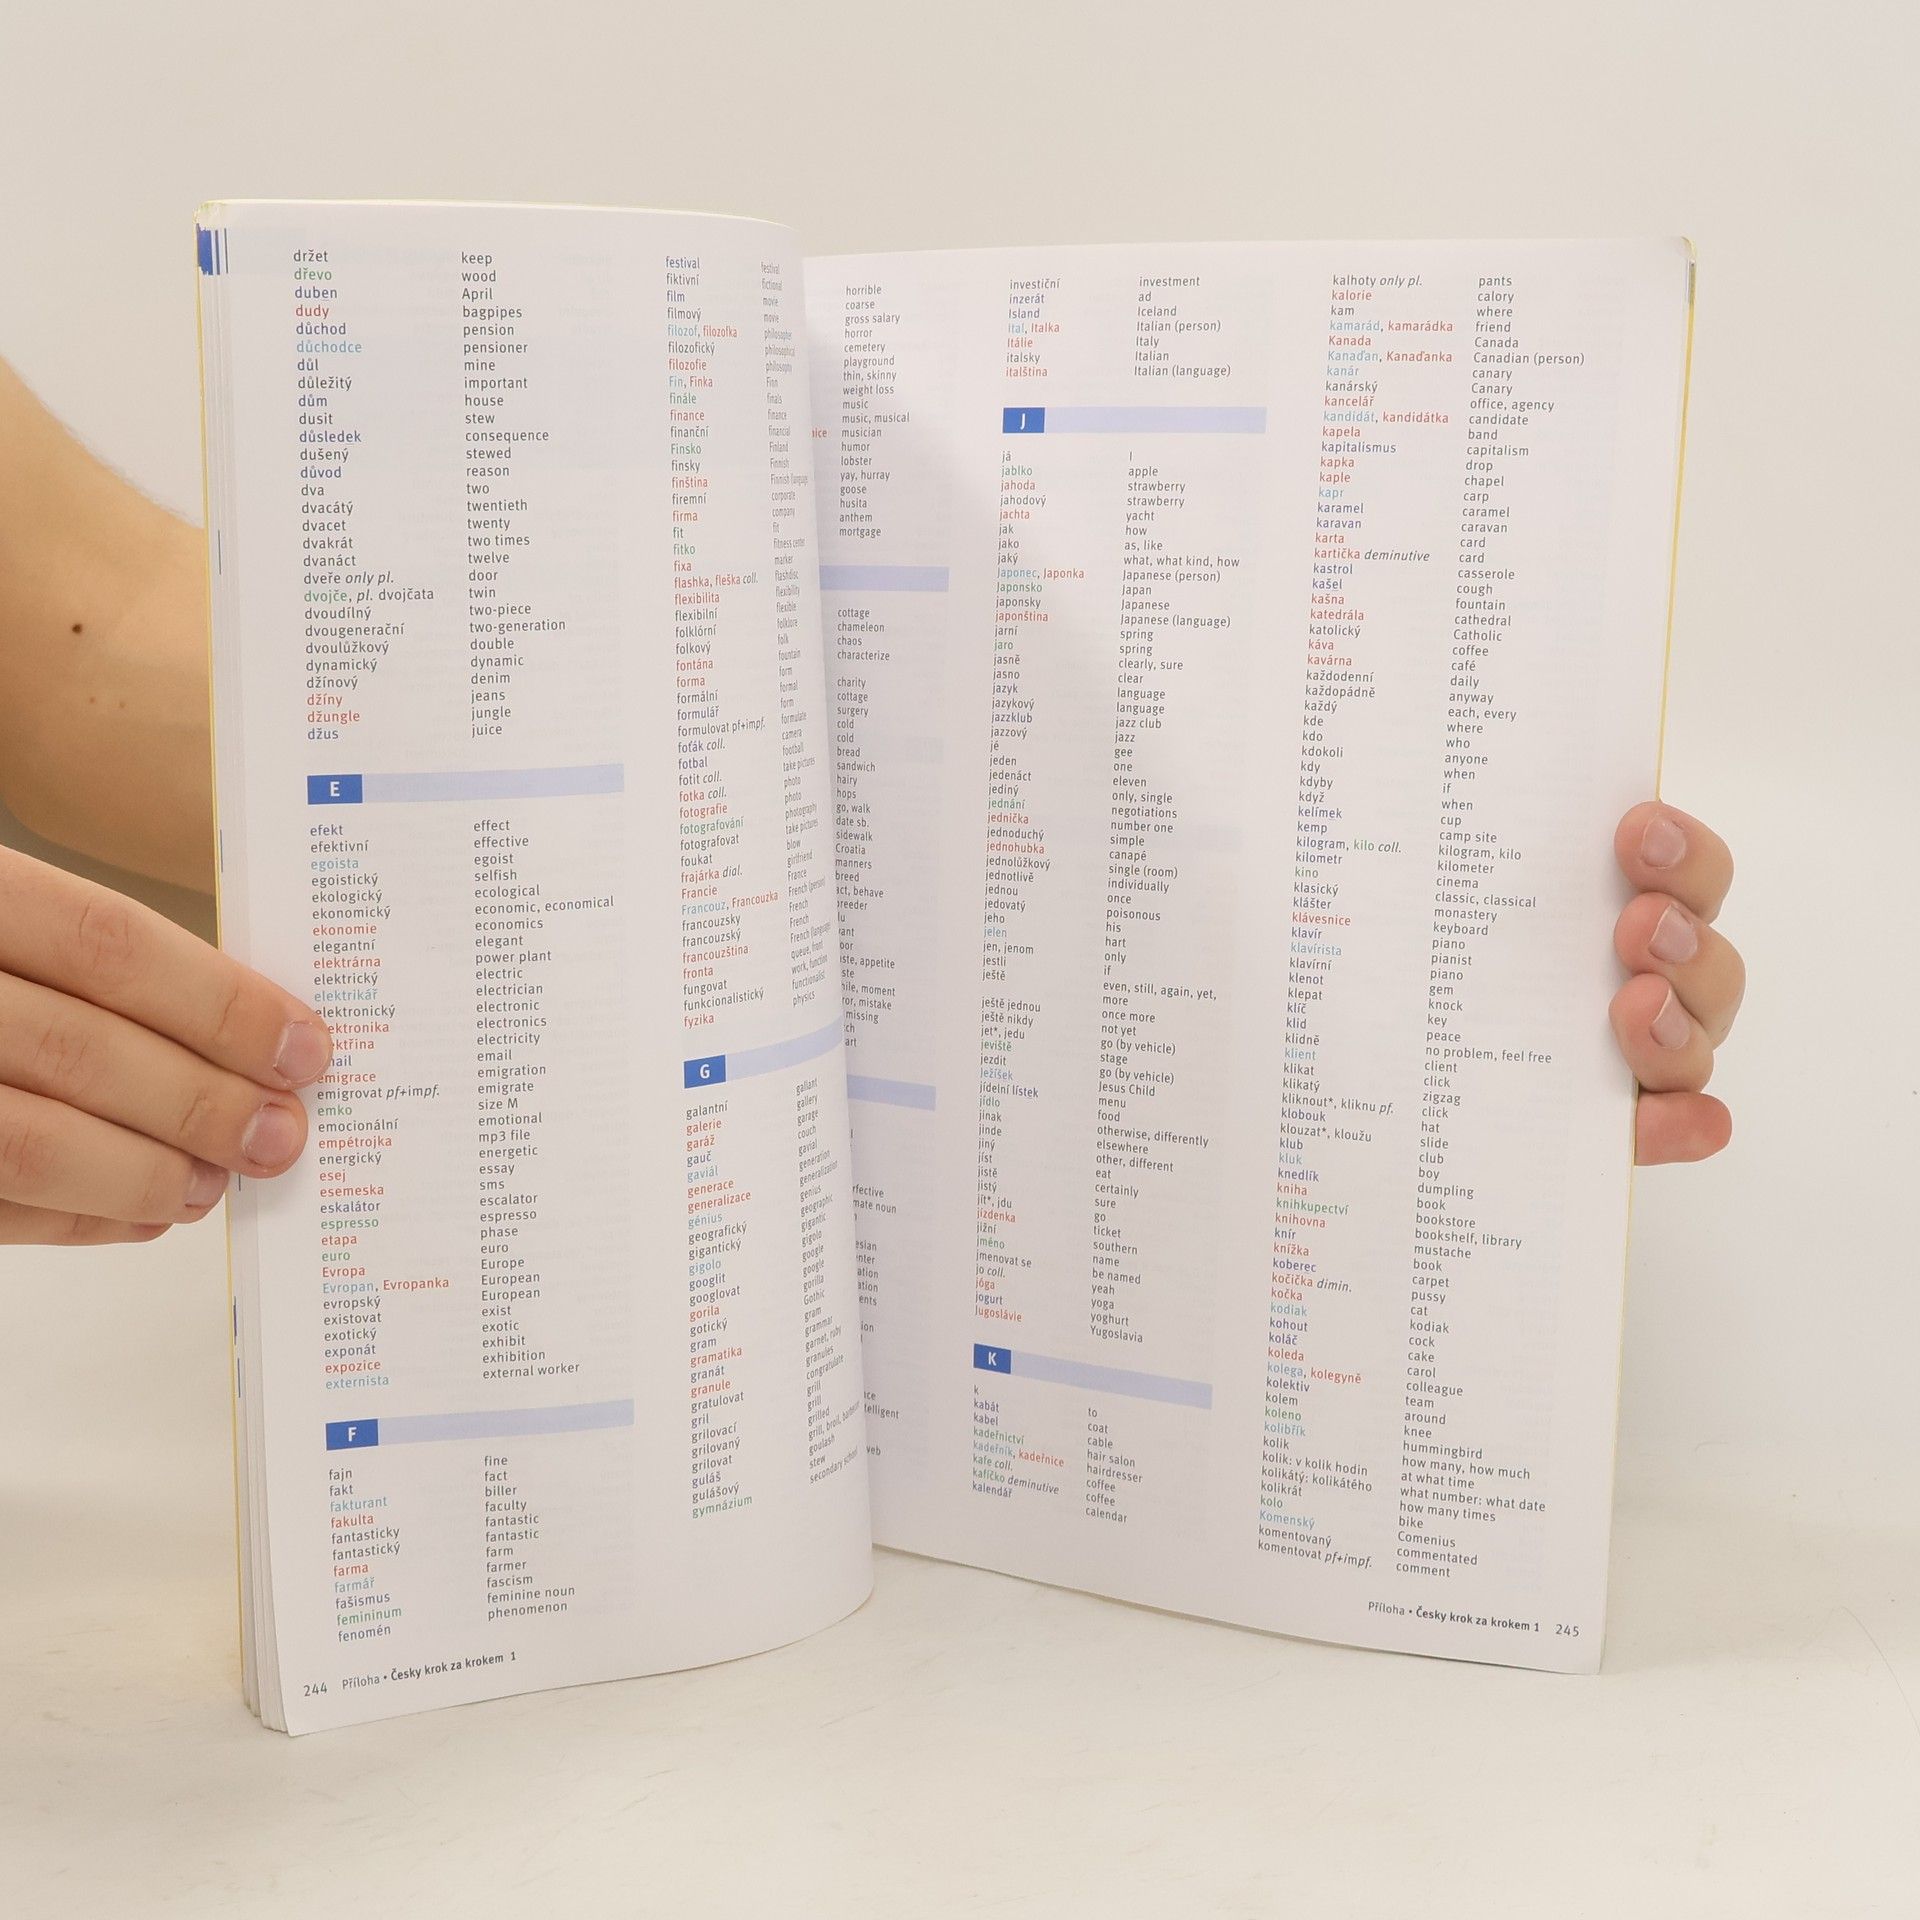 držet keep
dřevo wood
duben April
dudy bagpipes
důchod pension
důchodce pensioner
důl mine
důležitý important
dům house
dusit stew
důsledek consequence
dušený stewed
důvod reason
dva two
dvacátý twentieth
dvacet twenty
dvakrát two times
dvanáct twelve
dveře only pl. door
dvojče, pl. dvojčata twin
dvoudílný two-piece
dvougenerační two-generation
dvoulůžkový double
dynamický dynamic
džínový denim
džíny jeans
džungle jungle
džus juice
E
efekt effect
efektivní effective
egoista egoist
egoistický selfish
ekologický ecological
ekonomický economic, economical
ekonomie economics
elegantní elegant
elektrárna power plant
elektrický electric
elektrikář electrician
elektronický electronic
ektronika electronics
ektřina electricity
ail email
emigrace emigration
emigrovat pf+impf. emigrate
emko size M
emocionální emotional
empétrojka mp3 file
energický energetic
esej essay
esemeska sms
eskalátor escalator
espresso espresso
etapa phase
euro euro
Evropa Europe
Evropan, Evropanka European
evropský European
existovat exist
exotický exotic
exponát exhibit
expozice exhibition
externista external worker
F
fajn fine
fakt fact
fakturant biller
fakulta faculty
fantasticky fantastic
fantastický fantastic
farma farm
farmář farmer
fašismus fascism
femininum feminine noun
fenomén phenomenon
244 Příloha • Česky krok za krokem 1
festival festival
fiktivní fictional
film movie
filmový movie
filozof, filozofka philosopher
filozofický philosophical
filozofie philosophy
Fin, Finka Finn
finále finals
finance finance
finanční financial
Finsko Finland
finsky Finnish
finština Finnish (language)
firemní corporate
firma company
fit fit
fitko fitness center
fixa marker
flashka, fleška coll. flashdisc
flexibilita flexibility
flexibilní flexible
folklórní folklore
folkový folk
fontána fountain
forma form
formální formal
formulář form
formulovat pf+impf. formulate
foťák coll. camera
fotbal football
fotit coll. take pictures
fotka coll. photo
fotografie photo
fotografování photography
fotografovat take pictures
foukat blow
frajárka dial. girlfriend
Francie France
Francouz, Francouzka French (person)
francouzsky French
francouzský French
francouzština French (language)
fronta queue, front
fungovat work, function
funkcionalistický functionalist
fyzika physics
G
galantní gallant
galerie gallery
garáž garage
gauč couch
gaviál gavial
generace generation
generalizace generalization
génius genius
geografický geographic
gigantický gigantic
gigolo gigolo
googlit google
googlovat google
gorila gorilla
gotický Gothic
gram gram
gramatika grammar
granát garnet, ruby
granule granules
gratulovat congratulate
gril grill
grilovací grill
grilovaný grilled
grilovat grill, broil,
guláš goulash
gulášový stew
gymnázium secondary school
horrible
coarse
gross salary
horror
cemetery
playground
thin, skinny
weight loss
music
music, musical
nice musician
humor
lobster
yay, hurray
goose
husita
anthem
mortgage
cottage
chameleon
chaos
characterize
charity
cottage
surgery
cold
cold
bread
sandwich
hairy
hops
go, walk
date sb.
sidewalk
Croatia
manners
breed
act, behave
breeder
appetite
moment
mistake
missing
noun
investiční investment
inzerát ad
Island Iceland
Ital, Italka Italian (person)
Itálie Italy
italsky Italian
italština Italian (language)
J
já I
jablko apple
jahoda strawberry
jahodový strawberry
jachta yacht
jak how
jako as, like
jaký what, what kind, how
Japonec, Japonka Japanese (person)
Japonsko Japan
japonsky Japanese
japonština Japanese (language)
jarní spring
jaro spring
jasně clearly, sure
jasno clear
jazyk language
jazykový language
jazzklub jazz club
jazzový jazz
jé gee
jeden one
jedenáct eleven
jediný only, single
jednání negotiations
jednička number one
jednoduchý simple
jednohubka canapé
jednolůžkový single (room)
jednotlivě individually
jednou once
jedovatý poisonous
jeho his
jelen hart
jen, jenom only
jestli if
ještě even, still, again, yet,
more
ještě jednou once more
ještě nikdy not yet
jet*, jedu go (by vehicle)
jeviště stage
jezdit go (by vehicle)
Ježíšek Jesus Child
jídelní lístek menu
jídlo food
jinak otherwise, differently
jinde elsewhere
jiný other, different
jíst eat
jistě certainly
jistý sure
jít*, jdu go
jízdenka ticket
jižní southern
jméno name
jmenovat se be named
jo coll. yeah
jóga yoga
jogurt yoghurt
Jugoslávie Yugoslavia
K
k to
kabát coat
kabel cable
kadeřnictví hair salon
kadeřník, kadeřnice hairdresser
kafe coll. coffee
kafíčko deminutive coffee
kalendář calendar
kalhoty only pl. pants
kalorie calory
kam where
kamarád, kamarádka friend
Kanada Canada
Kanaďan, Kanaďanka Canadian (person)
kanár canary
kanárský Canary
kancelář office, agency
kandidát, kandidátka candidate
kapela band
kapitalismus capitalism
kapka drop
kaple chapel
kapr carp
karamel caramel
karavan caravan
karta card
kartička deminutive card
kastrol casserole
kašel cough
kašna fountain
katedrála cathedral
katolický Catholic
káva coffee
kavárna café
každodenní daily
každopádně anyway
každý each, every
kde where
kdo who
kdokoli anyone
kdy when
kdyby if
když when
kelímek cup
kemp camp site
kilogram, kilo coll. kilogram, kilo
kilometr kilometer
kino cinema
klasický classic, classical
klášter monastery
klávesnice keyboard
klavír piano
klavírista pianist
klavírní piano
klenot gem
klepat knock
klíč key
klid peace
klidně no problem, feel free
klient client
klikat click
klikatý zigzag
kliknout*, kliknu pf. click
klobouk hat
klouzat*, kloužu slide
klub club
kluk boy
knedlík dumpling
kniha book
knihkupectví bookstore
knihovna bookshelf, library
knír mustache
knížka book
koberec carpet
kočička dimin. pussy
kočka cat
kodiak kodiak
kohout cock
koláč cake
koleda carol
kolega, kolegyně colleague
kolektiv team
kolem around
koleno knee
kolibřík hummingbird
kolik how many, how much
kolik: v kolik hodin at what time
kolikátý: kolikátého what number: what date
kolikrát how many times
kolo bike
Komenský Comenius
komentovaný commentated
komentovat pf+impf. comment
Příloha • Česky krok za krokem 1 245